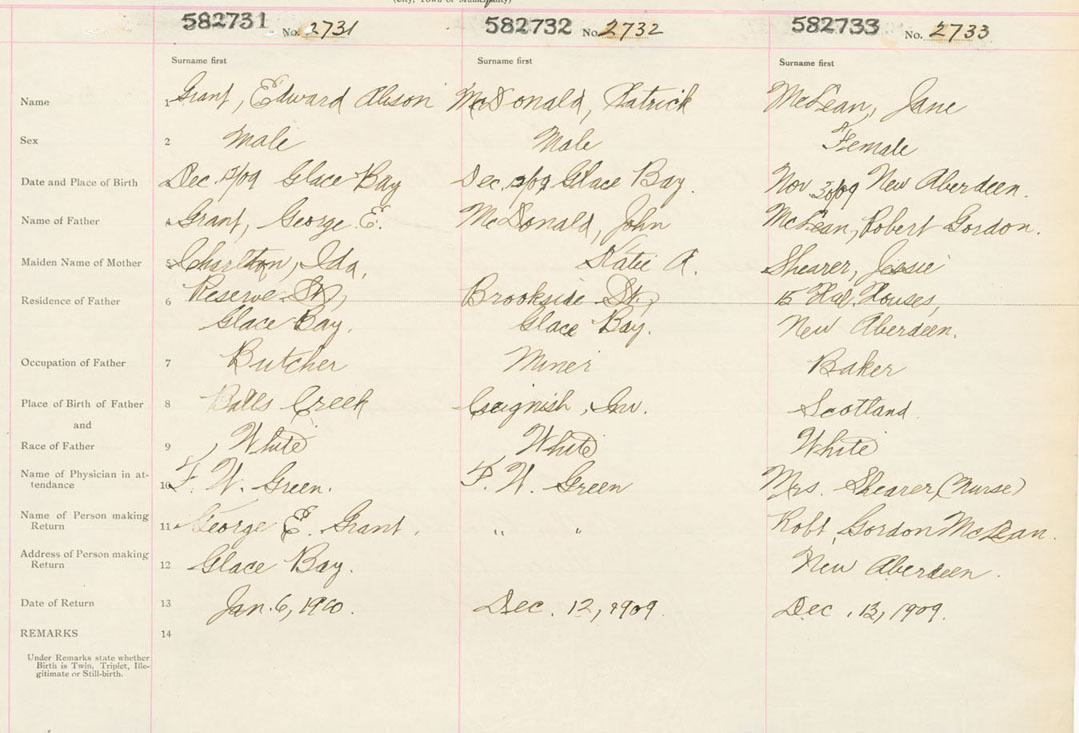 (City, Town or Municipality)
582731 No. 2731 582732 No. 2732 582733 No. 2733
Surname first Surname first Surname first
Name 1 Grant, Edward Alison McDonald, Patrick McLean, Jane
Sex 2 Male Male Female
Date and Place of Birth Dec. Glace Bay Dec. Glace Bay. Nov 30/09 New Aberdeen.
Name of Father 4 Grant, George E. McDonald, John McLean, Robert Gordon.
Maiden Name of Mother 5 Charlton, Ida, Katie A. Shearer, Jessie
Residence of Father 6 Reserve St, Brookside St, 15 Houses,
Glace Bay. Glace Bay. New Aberdeen.
Occupation of Father 7 Butcher Miner Baker
Place of Birth of Father 8 Balls Creek Creignish, Inv. Scotland
and
Race of Father 9 White White White
Name of Physician in at-
tendance 10 F. W. Green. F. W. Green Mrs. Shearer (Nurse)
Name of Person making
Return 11 George E. Grant. " " Robt. Gordon McLean.
Address of Person making
Return 12 Glace Bay. New Aberdeen.
Date of Return 13 Jan. 6, 1910. Dec. 12, 1909. Dec. 13, 1909.
REMARKS 14
Under Remarks state whether
Birth is Twin, Triplet, Ille-
gitimate or Still-birth.